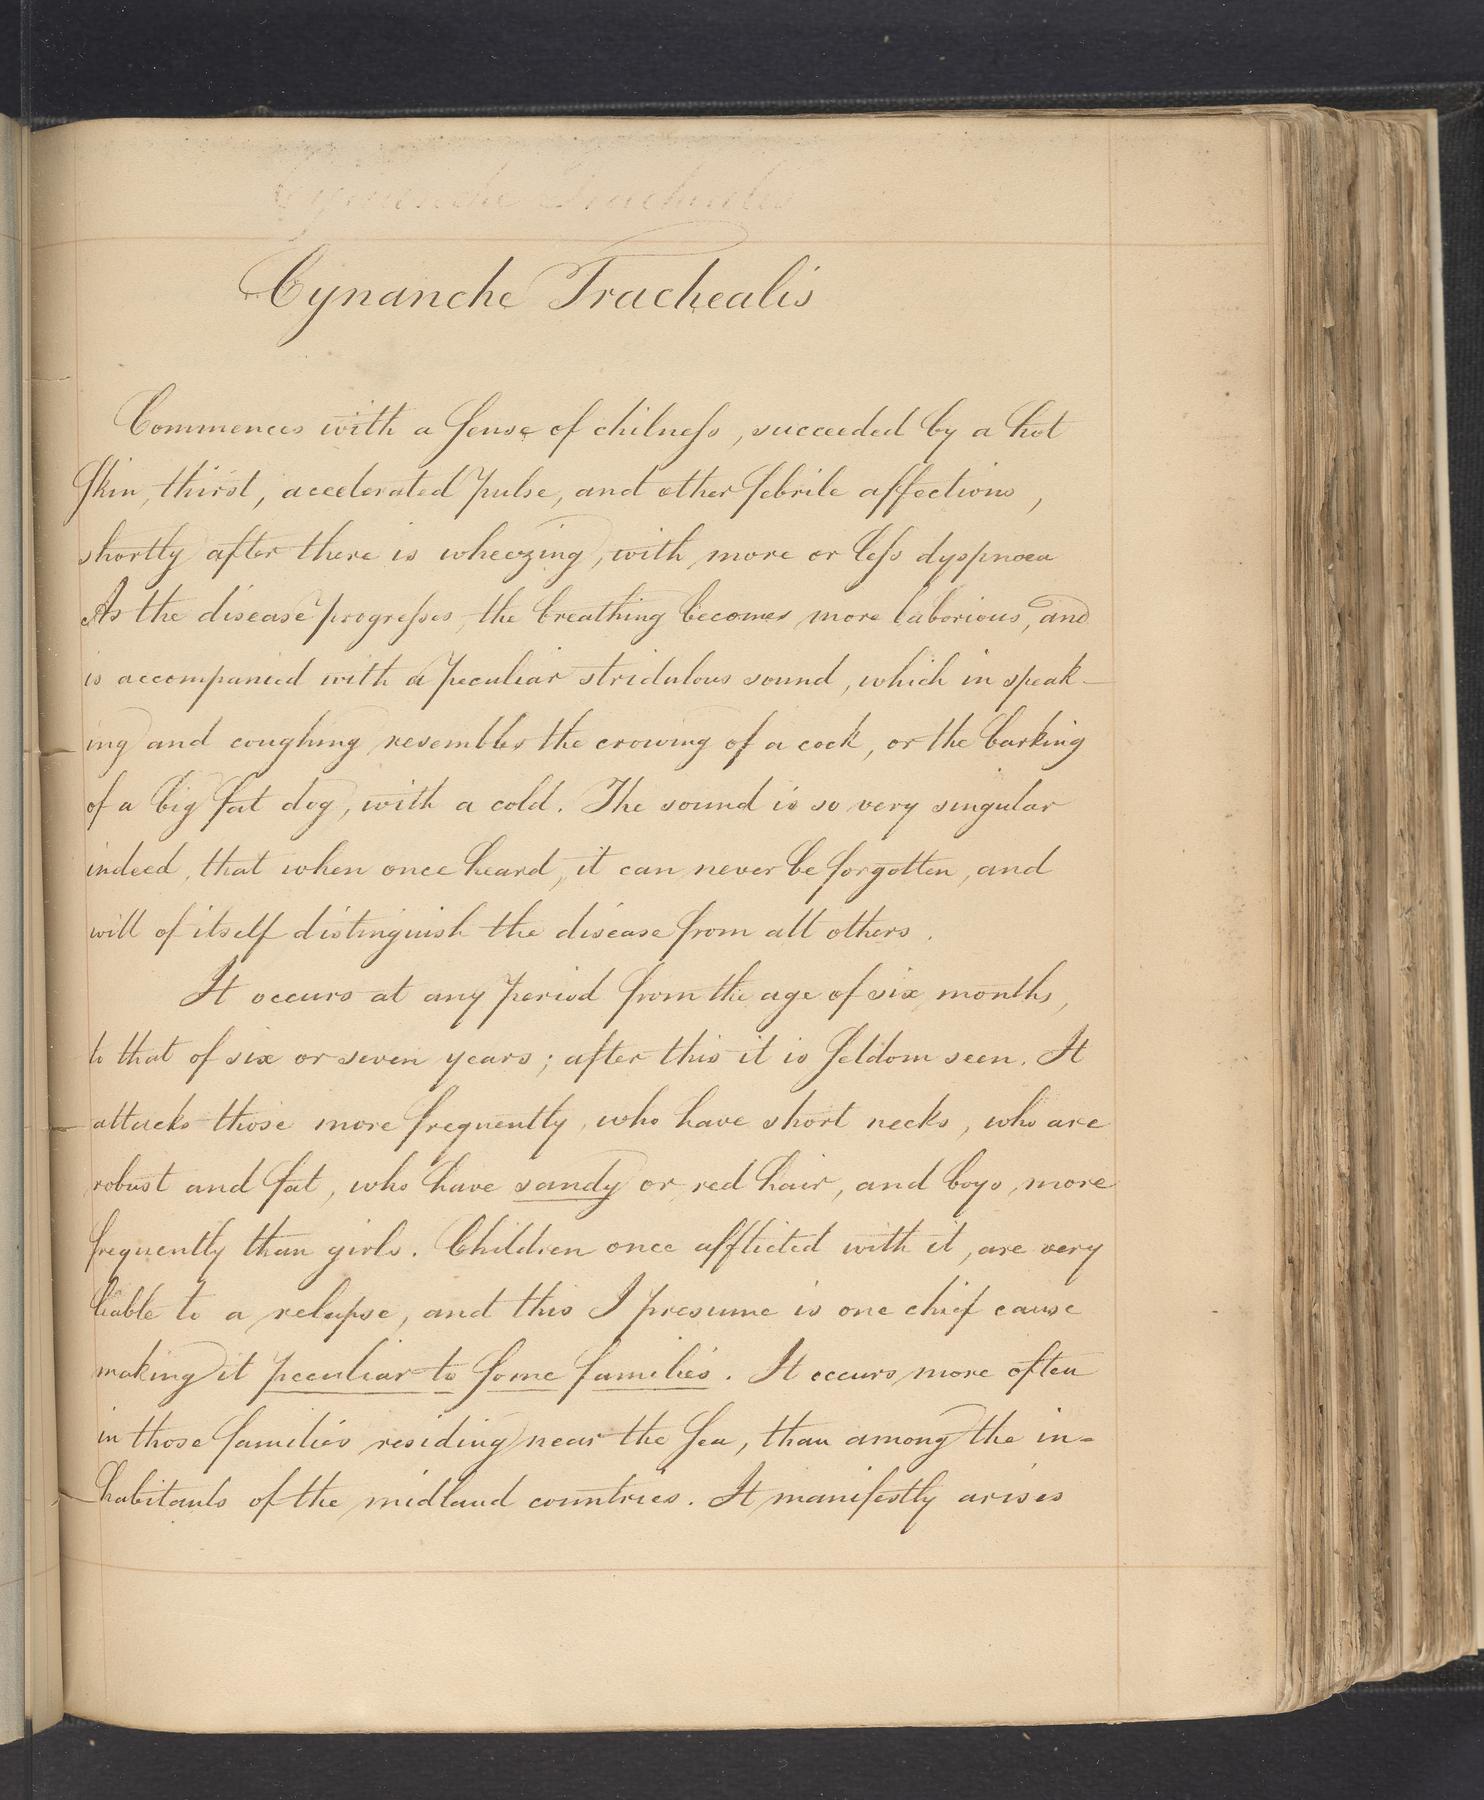 Cynanche Trachealis
Cynanche Trachealis
Commences with a sense of chilness, succeeded by a hot
skin, thirst, accelerated pulse, and other febrile affections,
shortly after there is wheezing, with more or less dyspnoea
As the disease progresses, the breathing becomes more laborious, and
is accompanied with a peculiar stridulous sound, which in speak-
ing and coughing resembles the crowing of a cock, or the barking
of a big fat dog, with a cold. The sound is so very singular
indeed, that when once heard, it can never be forgotten, and
will of itself distinguish the disease from all others.
It occurs at any period from the age of six months,
to that of six or seven years; after this it is seldom seen. It
attacks those more frequently, who have short necks, who are
robust and fat, who have sandy or red hair, and boys more
frequently than girls. Children once afflicted with it, are very
liable to a relapse, and this I presume is one chief cause
making it peculiar to some families. It occurs more often
in those families residing near the sea, than among the in=
habitants of the midland countries. It manifestly arises